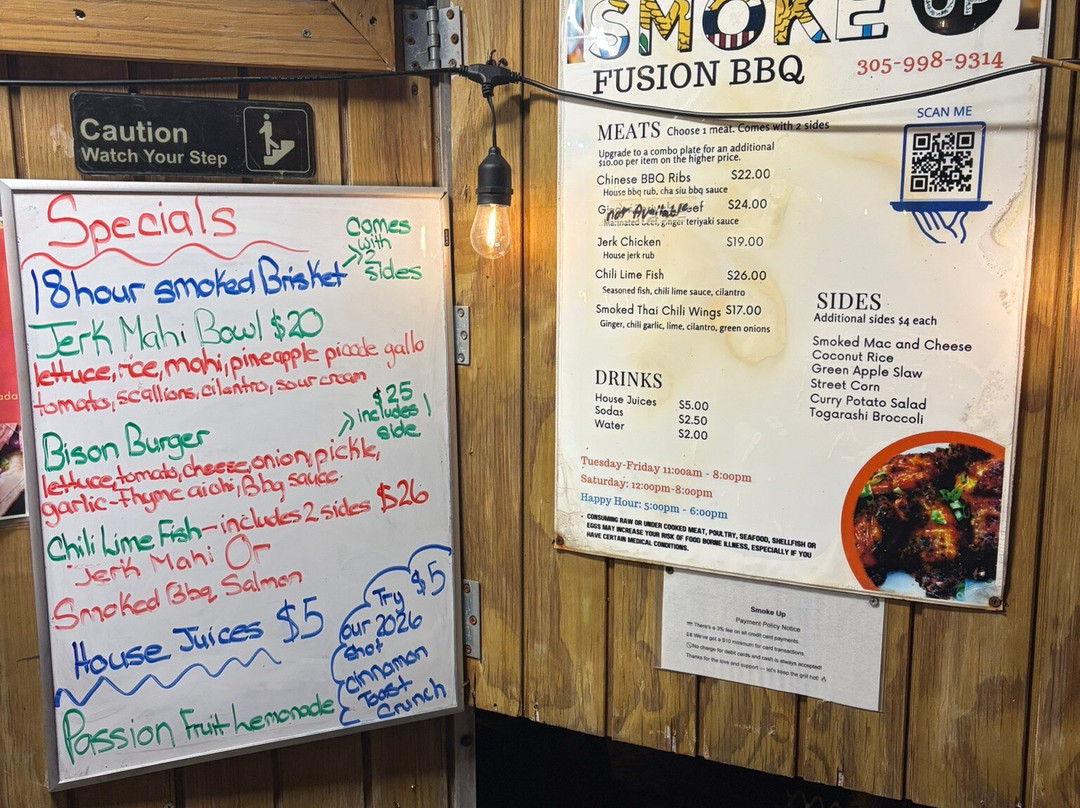 Caution
Watch Your Step
Specials
18 hour smoked Brisket
Comes
with
2
sides
Jerk Mahi Bowl $20
lettuce, rice, mahi, pineapple picode gallo
tomato, scallions, cilantro, sour cream
Bison Burger
$25
includes 1
side
lettuce, tomato, cheese, onion, pickle,
garlic-thyme aioli, Bbq sauce
Chili Lime Fish - includes 2 sides $26
Jerk Mahi Or
Smoked Bbq Salmon
House Juices $5
Passion Fruit Lemonade
Try $5
our 2026
shot
cinnamon
Toast
Crunch
SMOKE UP
FUSION BBQ
305-998-9314
SCAN ME
MEATS Choose 1 meat. Comes with 2 sides
Upgrade to a combo plate for an additional
$10.00 per item on the higher price.
Chinese BBQ Ribs $22.00
House bbq rub, cha siu bbq sauce
not Available
$24.00
Marinated beef, ginger teriyaki sauce
Jerk Chicken $19.00
House jerk rub
Chili Lime Fish $26.00
Seasoned fish, chili lime sauce, cilantro
Smoked Thai Chili Wings $17.00
Ginger, chili garlic, lime, cilantro, green onions
DRINKS
House Juices $5.00
Sodas $2.50
Water $2.00
SIDES
Additional sides $4 each
Smoked Mac and Cheese
Coconut Rice
Green Apple Slaw
Street Corn
Curry Potato Salad
Togarashi Broccoli
Tuesday-Friday 11:00am - 8:00pm
Saturday: 12:00pm-8:00pm
Happy Hour: 5:00pm - 6:00pm
* CONSUMING RAW OR UNDER COOKED MEAT, POULTRY, SEAFOOD, SHELLFISH OR
EGGS MAY INCREASE YOUR RISK OF FOOD BORNE ILLNESS, ESPECIALLY IF YOU
HAVE CERTAIN MEDICAL CONDITIONS.
Smoke Up
Payment Policy Notice
There's a 3% fee on all credit card payments.
We've got a $10 minimum for card transactions.
No charge for debit cards and cash is always accepted!
Thanks for the love and support — let's keep the grill hot!